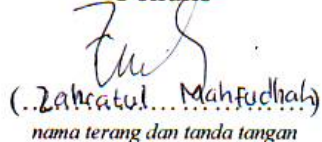 (..Zahratul....Mahfudhah)
nama terang dan tanda tangan